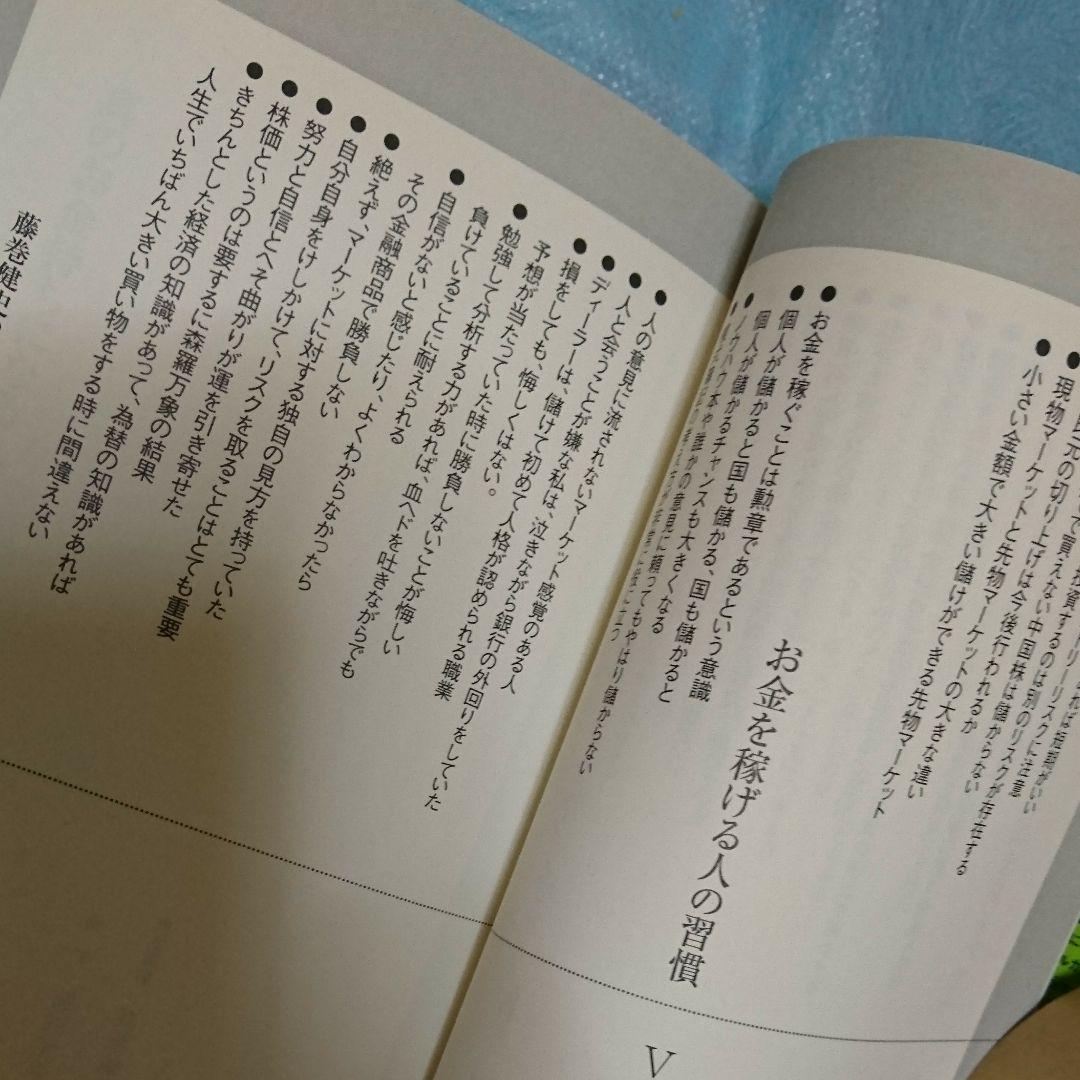 れば短期がいい
投資するのは別のリスクに注意
で買えない中国株は儲からない
リスクが存在する
元の切り上げは今後行われるか
● 現物マーケットと先物マーケットの大きな違い
● 小さい金額で大きい儲けができる先物マーケット
お金を稼げる人の習慣
V
● お金を稼ぐことは勲章であるという意識
● 個人が儲かると国も儲かる、国も儲かると
個人が儲かるチャンスも大きくなる
● ノウハウ本や誰かの意見に頼ってもやはり儲からない
● 人の意見に流されないマーケット感覚のある人
● 人と会うことが嫌な私は、泣きながら銀行の外回りをしていた
● ディーラーは、儲けて初めて人格が認められる職業
● 損をしても、悔しくはない。
予想が当たっていた時に勝負しないことが悔しい
● 勉強して分析する力があれば、血ヘドを吐きながらでも
負けていることに耐えられる
● 自信がないと感じたり、よくわからなかったら
その金融商品で勝負しない
● 絶えず、マーケットに対する独自の見方を持っていた
● 自分自身をけしかけて、リスクを取ることはとても重要
● 努力と自信とへそ曲がりが運を引き寄せた
● 株価というのは要するに森羅万象の結果
● きちんとした経済の知識があって、為替の知識があれば
人生でいちばん大きい買い物をする時に間違えない
藤巻健史